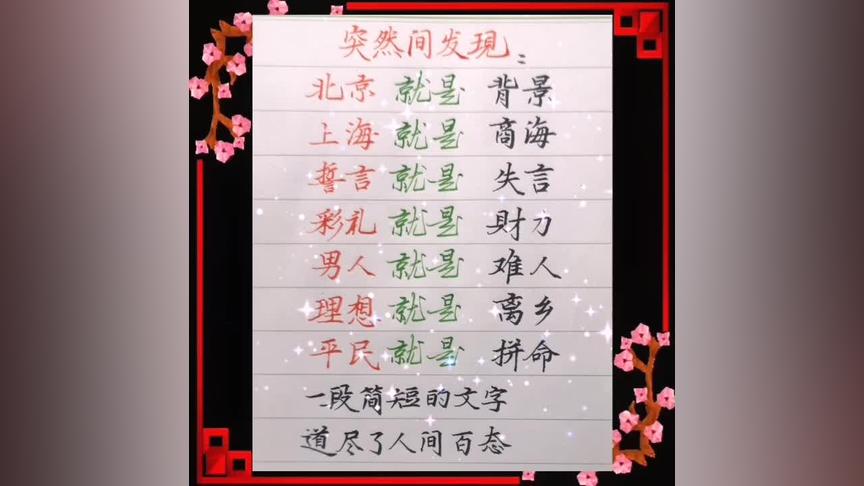 突然间发现：
北京 就是 背景
上海 就是 商海
誓言 就是 失言
彩礼 就是 财力
男人 就是 难人
理想 就是 离乡
平民 就是 拼命
一段简短的文字
道尽了人间百态